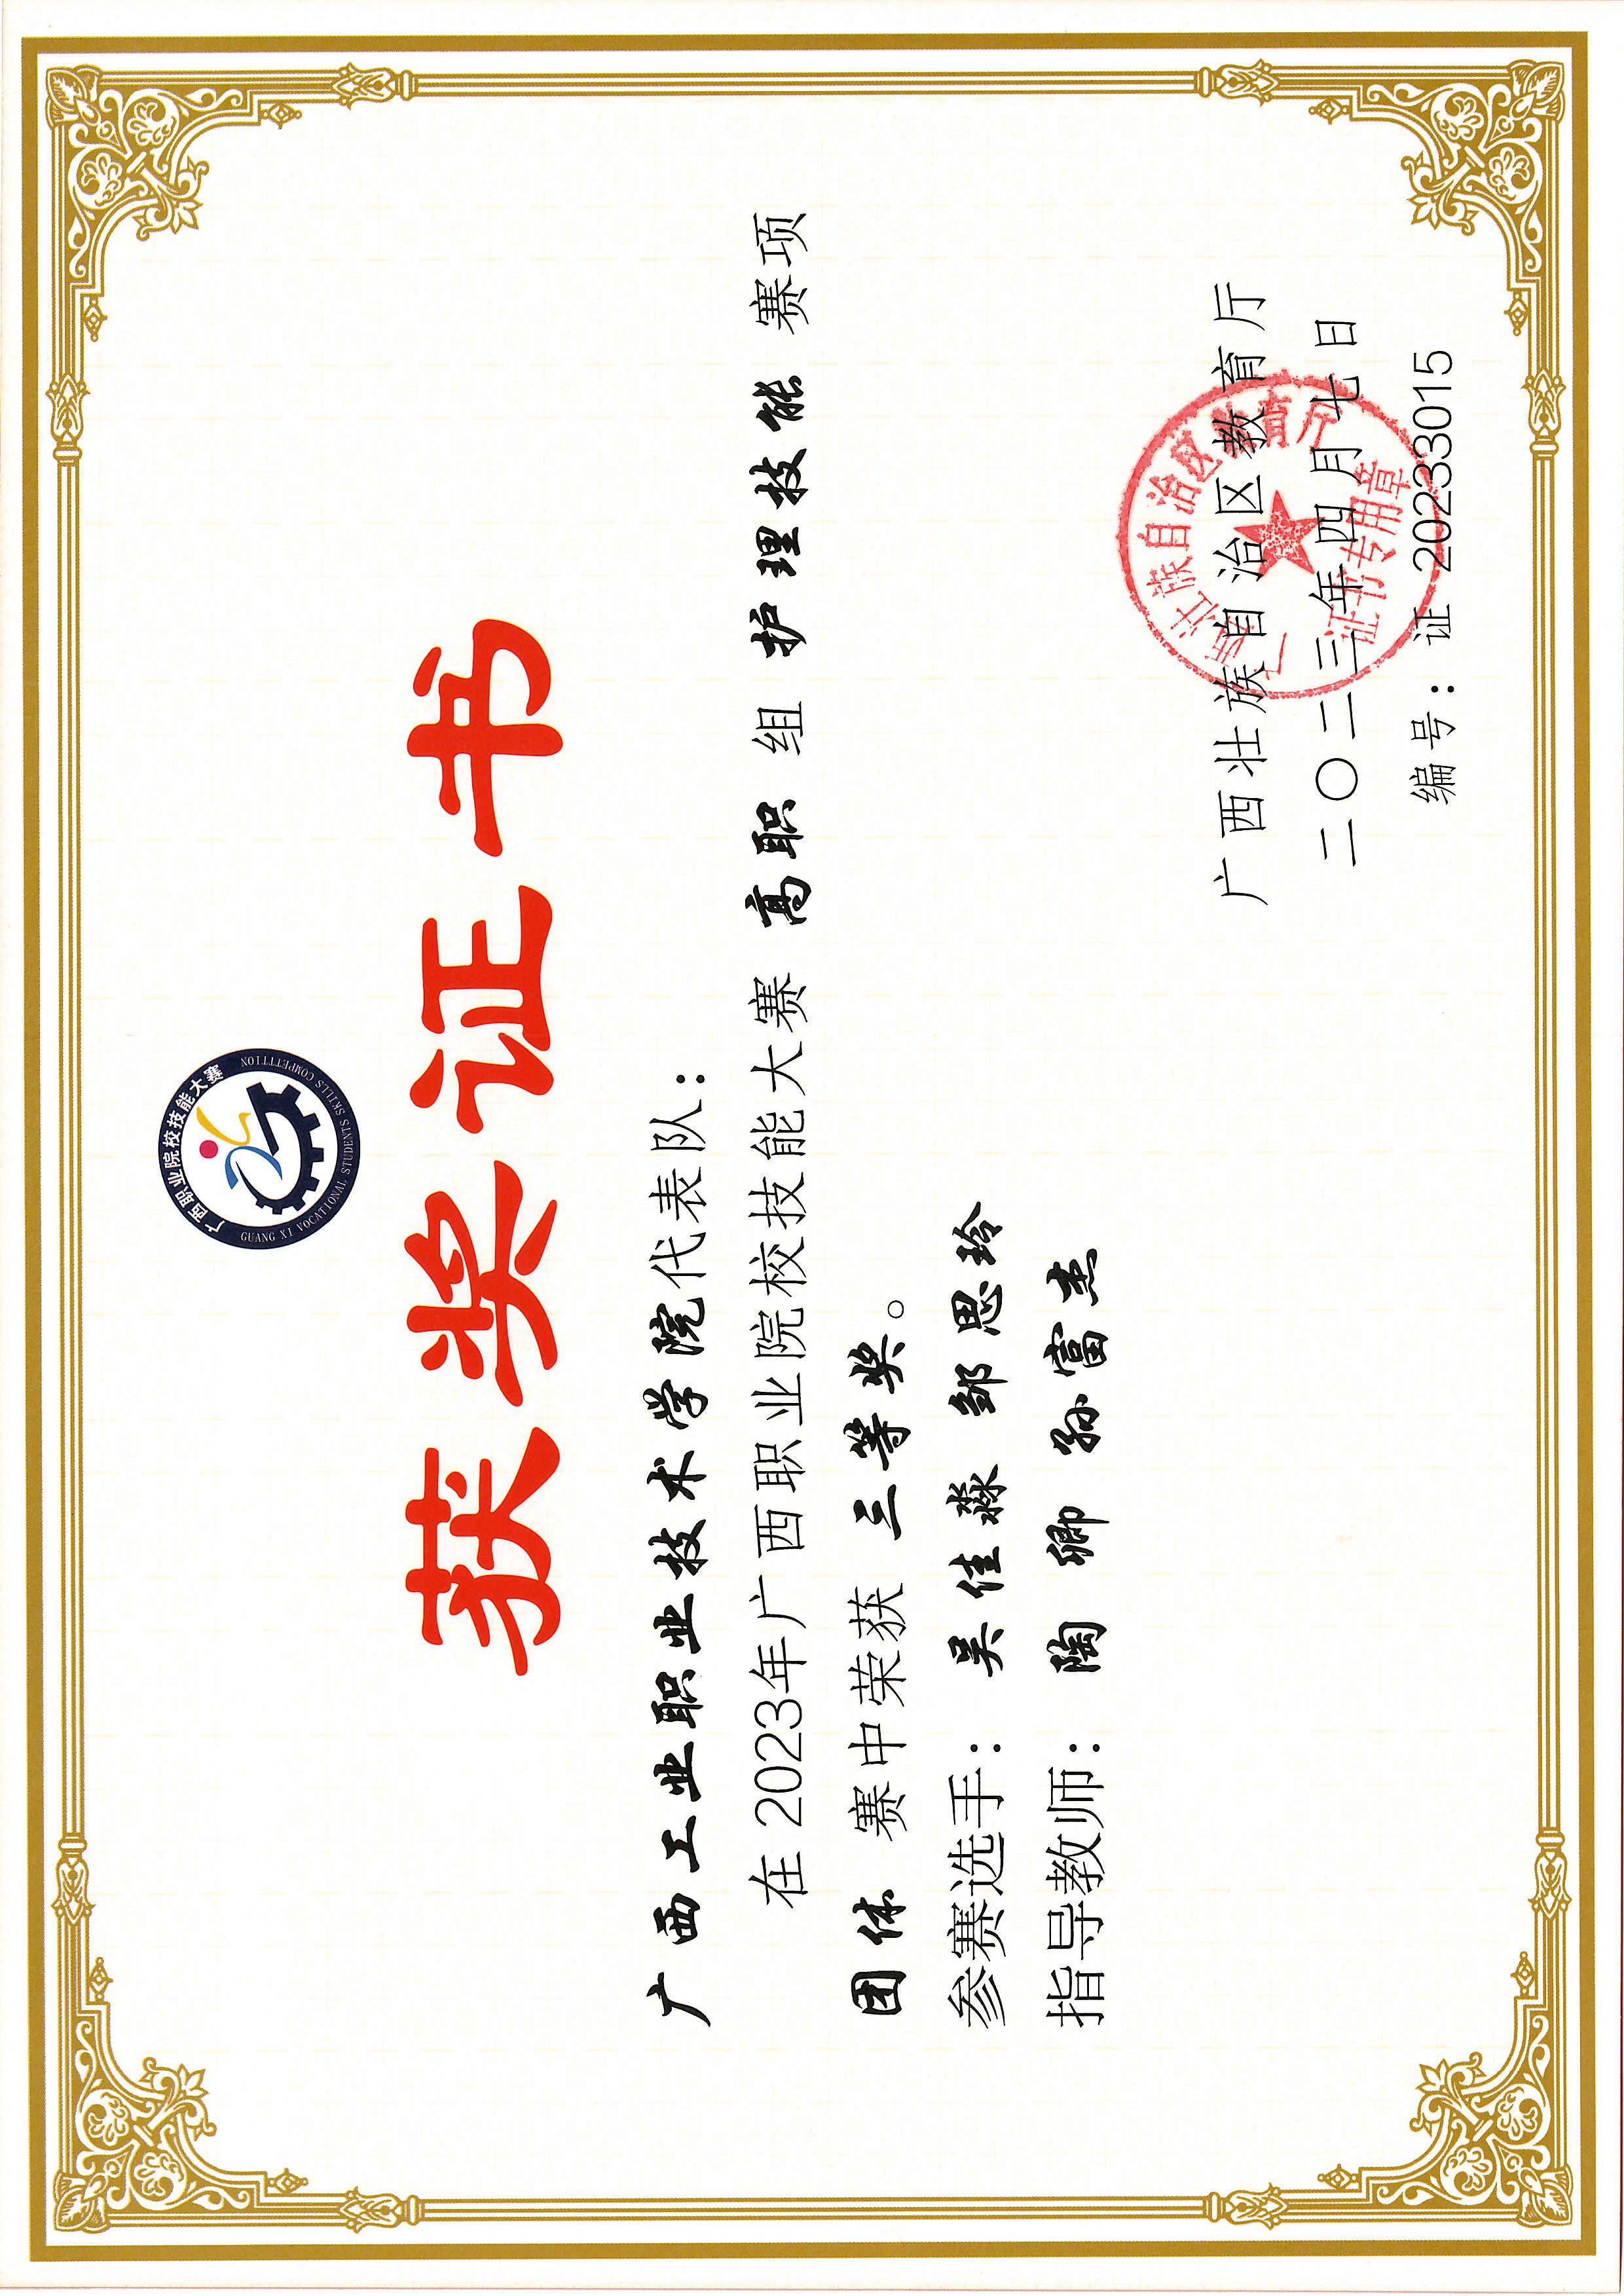 广西职业院校技能大赛
GUANG XI VOCATIONAL STUDENTS SKILLS COMPETITION
获奖证书
广西工业职业技术学院代表队：
在2023年广西职业院校技能大赛 高职 组 护理技能 赛项
团体 赛中荣获 三等奖。
参赛选手： 吴佳淼 邹思玲
指导教师： 陶卿 孙富杰
广西壮族自治区教育厅
二〇二三年四月七日
编号：证 20233015
广西壮族自治区教育厅
证书专用章